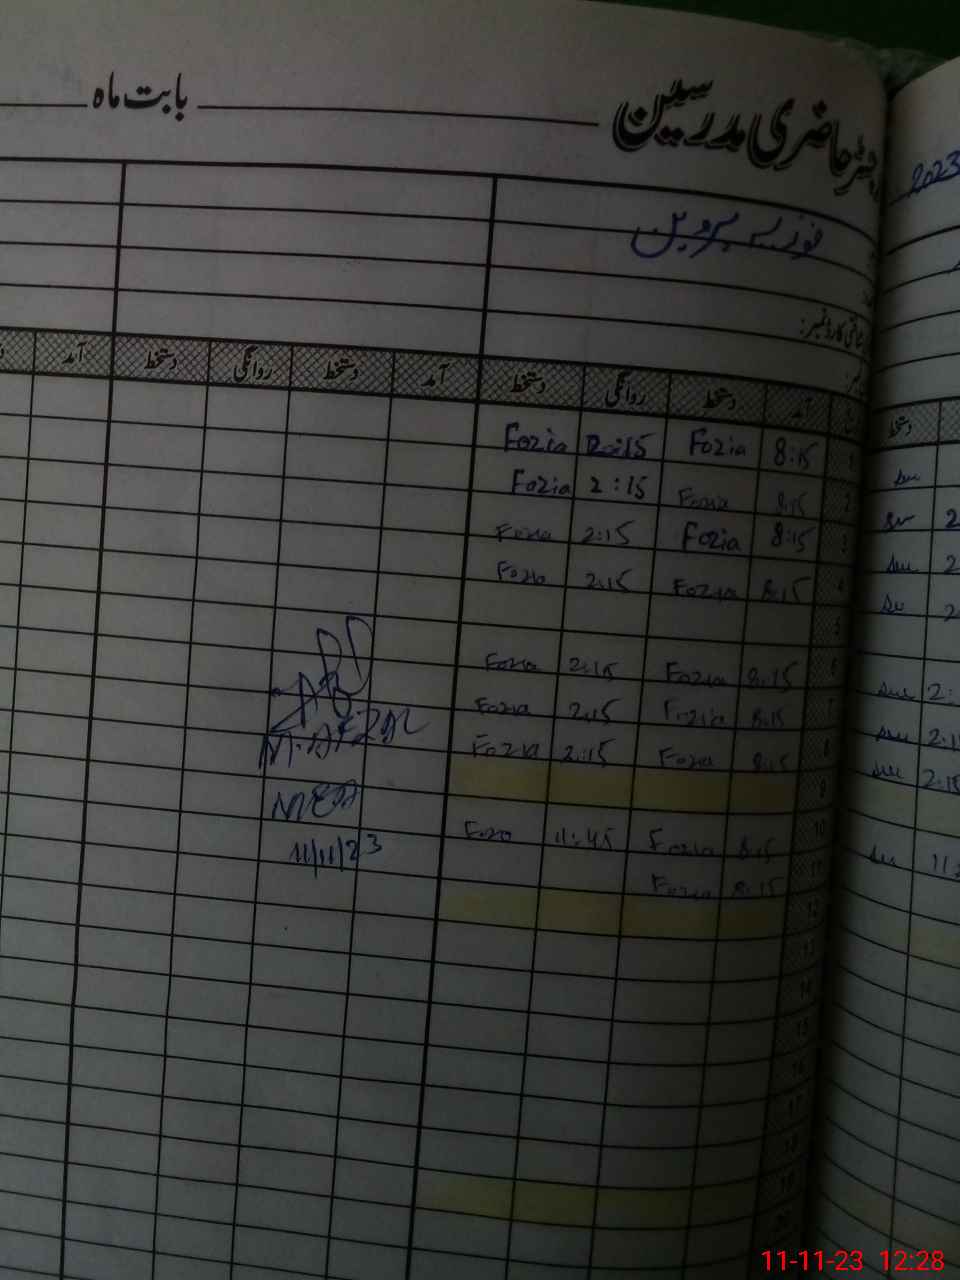 رجسٹر حاضری مدرسین ــــــــــ بابت ماہ ــــــــــ
2023
فوزیہ پروین
شناختی کارڈ نمبر:
آمد دستخط روانگی دستخط آمد دستخط روانگی دستخط آمد
دستخط
1 8:15 Fozia 2:15 Fozia
2 8:15 Fozia 2:15 Fozia
3 8:15 Fozia 2:15 Fozia
4 8:15 Fozia 2:15 Fozia
5
6 8:15 Fozia 2:15 Fozia
7 8:15 Fozia 2:15 Fozia
8 8:15 Fozia 2:15 Fozia
9
10 8:15 Fozia 11:45 Fozia
11 8:15 Fozia
12
13
14
15
16
17
18
19
20
M. Afzal
MEA
11/11/23
11-11-23 12:28